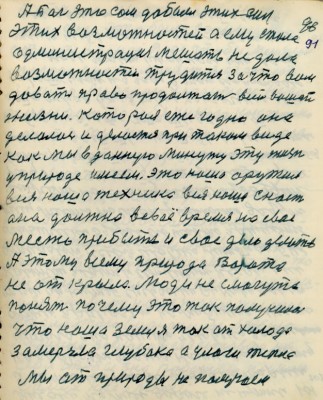 А так это сам добился этих сил
98
этих возможностей а ему стала
91
администрация мешать не дала
возможности трудится за что вам
давать право продолжать вашей
жизни. Которая ежегодно она
делалась и делается при таком виде
как мы в данную минуту эту
в природе имеем. Это наша
вся наша техника вся наша
она должна в своё время на своё
место прибыть и своё дело делать
А этому всему природа ворота
не открыла. Люди не смогут
понять почему это так получилось
что наша земля так от холода
замерзла глубоко а у нас тепла
мы от природы не получаем